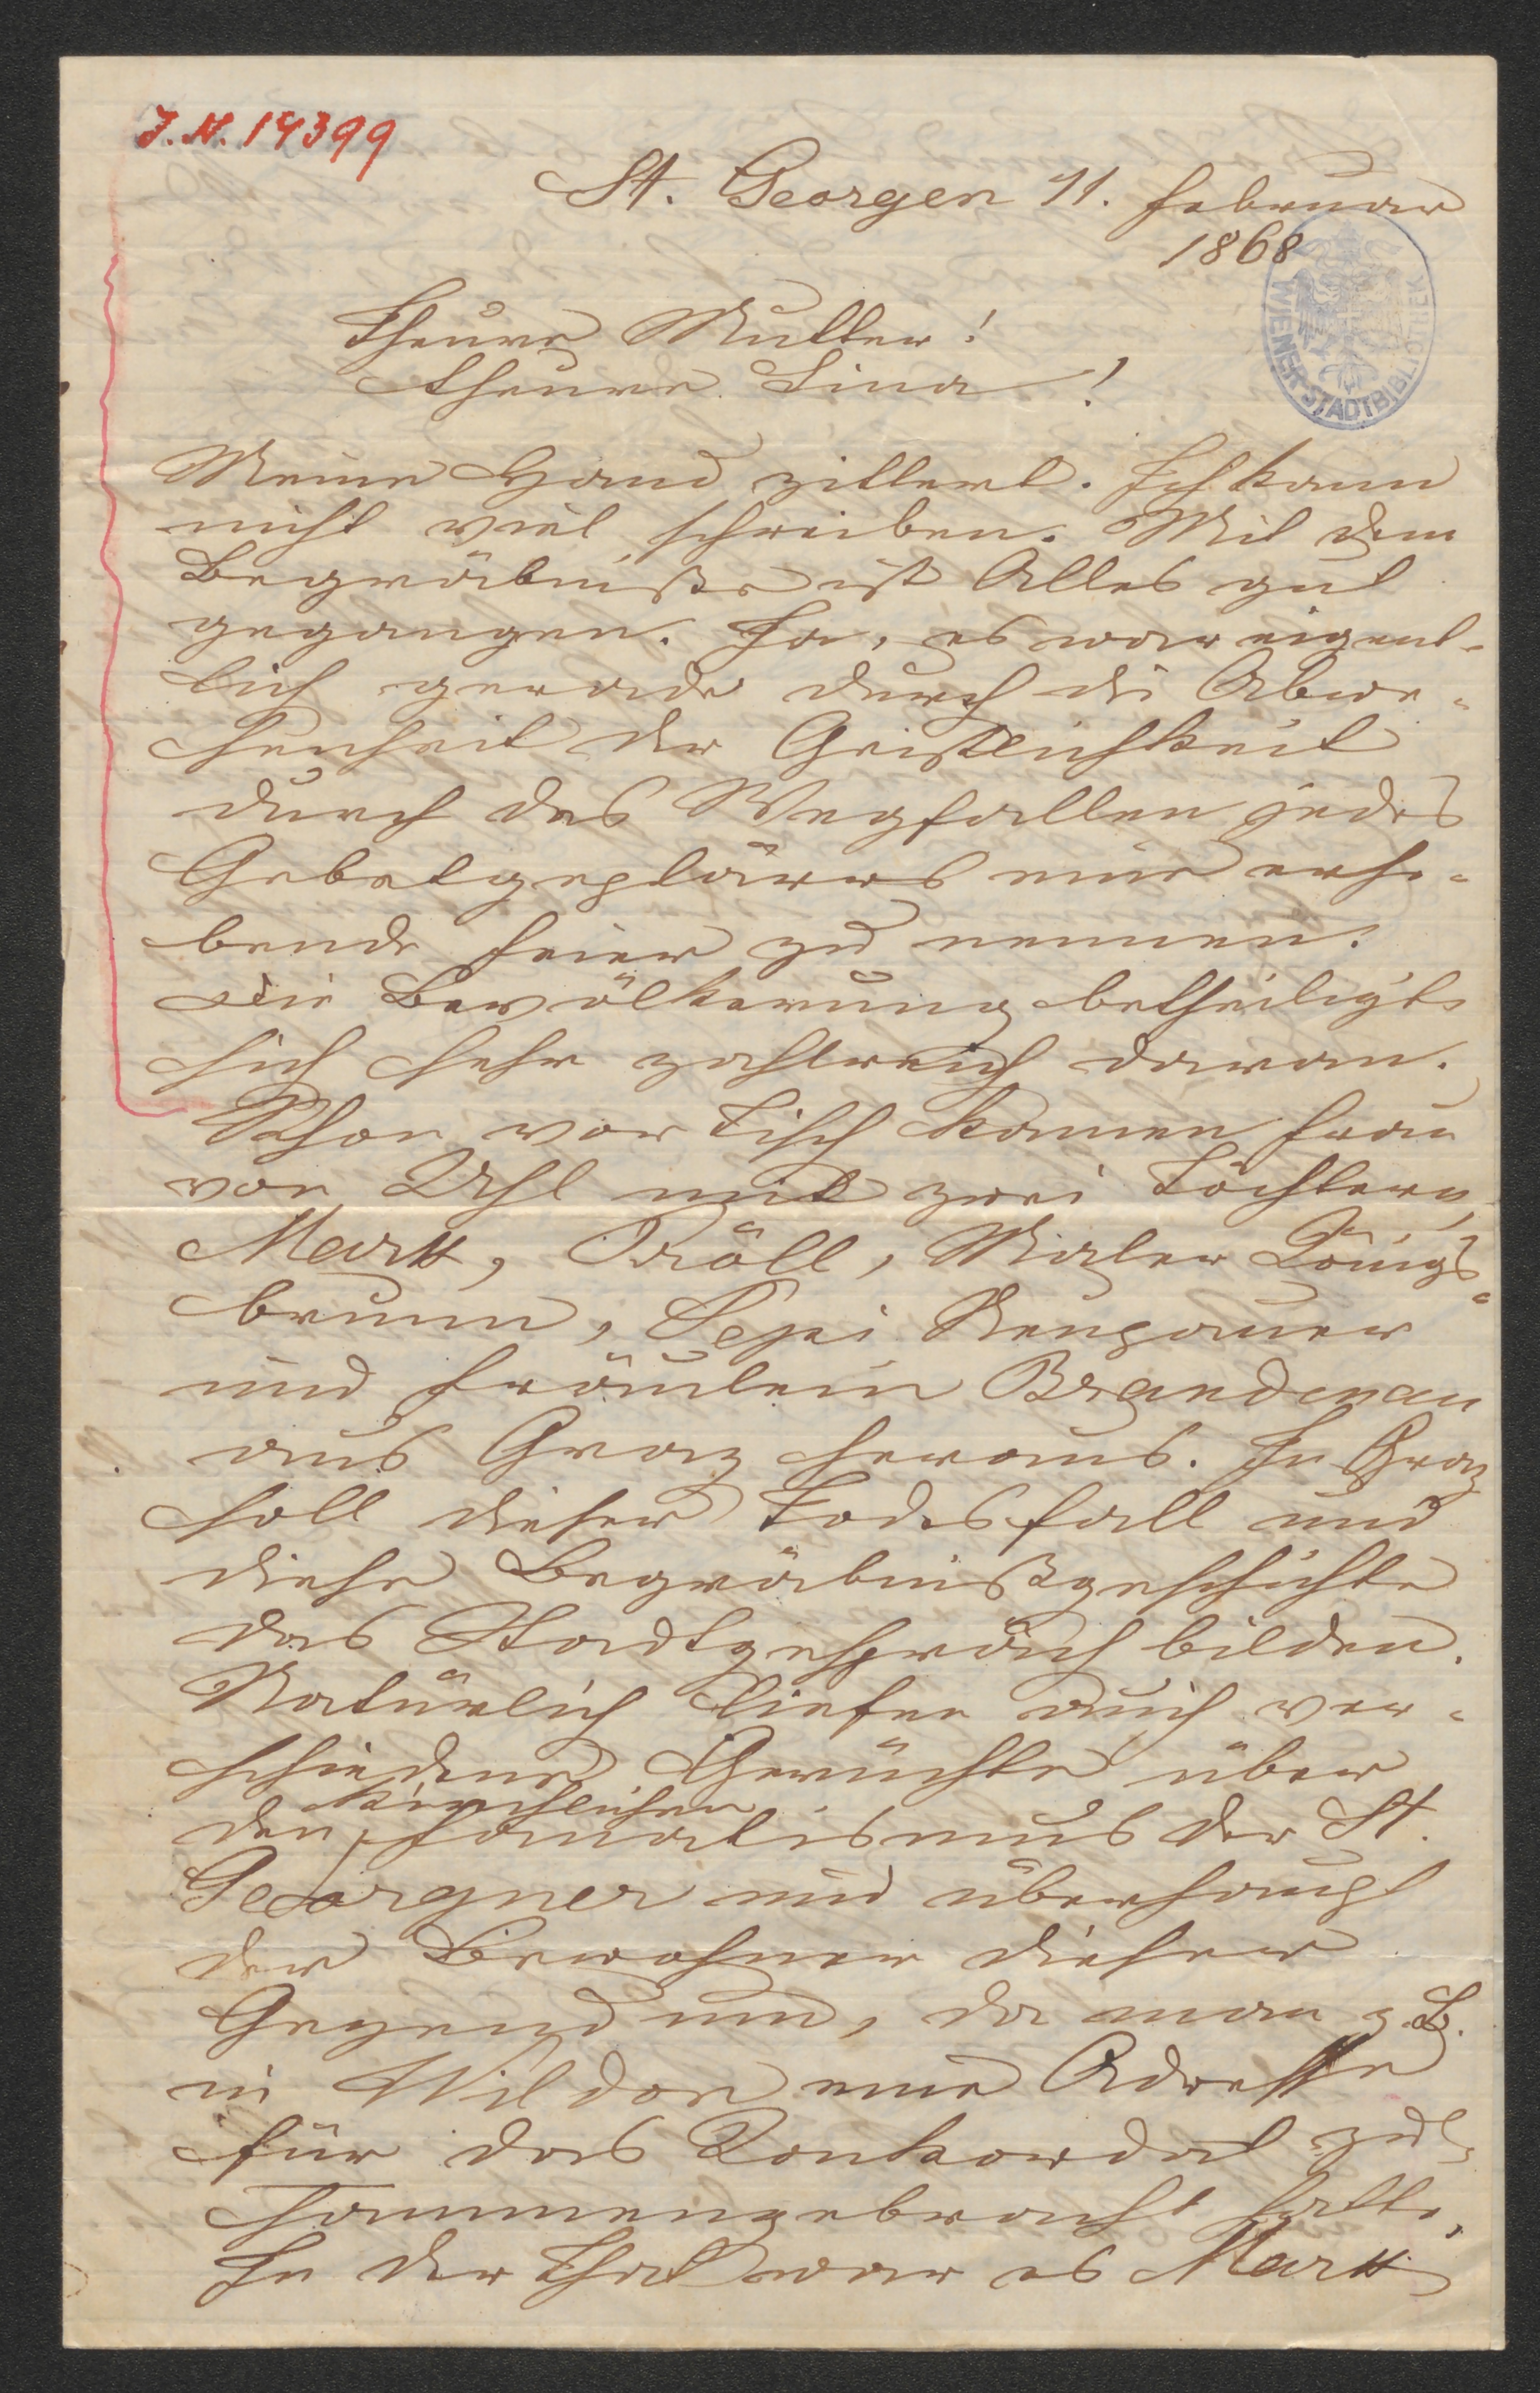 J.N. 14399
St. Georgen 11. Februar
1868
WIENER STADTBIBLIOTHEK
Theure Mutter!
theure Lina!
Meine Hand zittert. Ich kann
nicht viel schreiben. Mit dem
Begräbnisse ist Alles gut
gegangen. Ja, es war eigent-
lich gerade durch die Abwe-
senheit der Geistlichkeit
durch das Wegfallen jedes
Gebetgeplärres eine erhe-
bende Feier zu nennen.
Die Bevölkerung betheiligte
sich sehr zahlreich daran.
Schon vor Tisch kamen Frau
von Uhl mit zwei Töchtern,
Marx, Pröll, Maler Königs-
brunn, Pepi
und Fräulein
aus Graz heraus. In Graz
soll dieser Todesfall und
diese Begräbnißgeschichte
das Stadtgespräch bilden.
Natürlich liefen auch ver-
schiedene Gerüchte über
kirchlichen
den Fanatismus der St.
Georgner und überhaupt
der Bewohner dieser
Gegend um, da man z.B.
in Wildon eine Adresse
für das Konkordat zu-
sammengebracht hatte.
In der That war es Marx